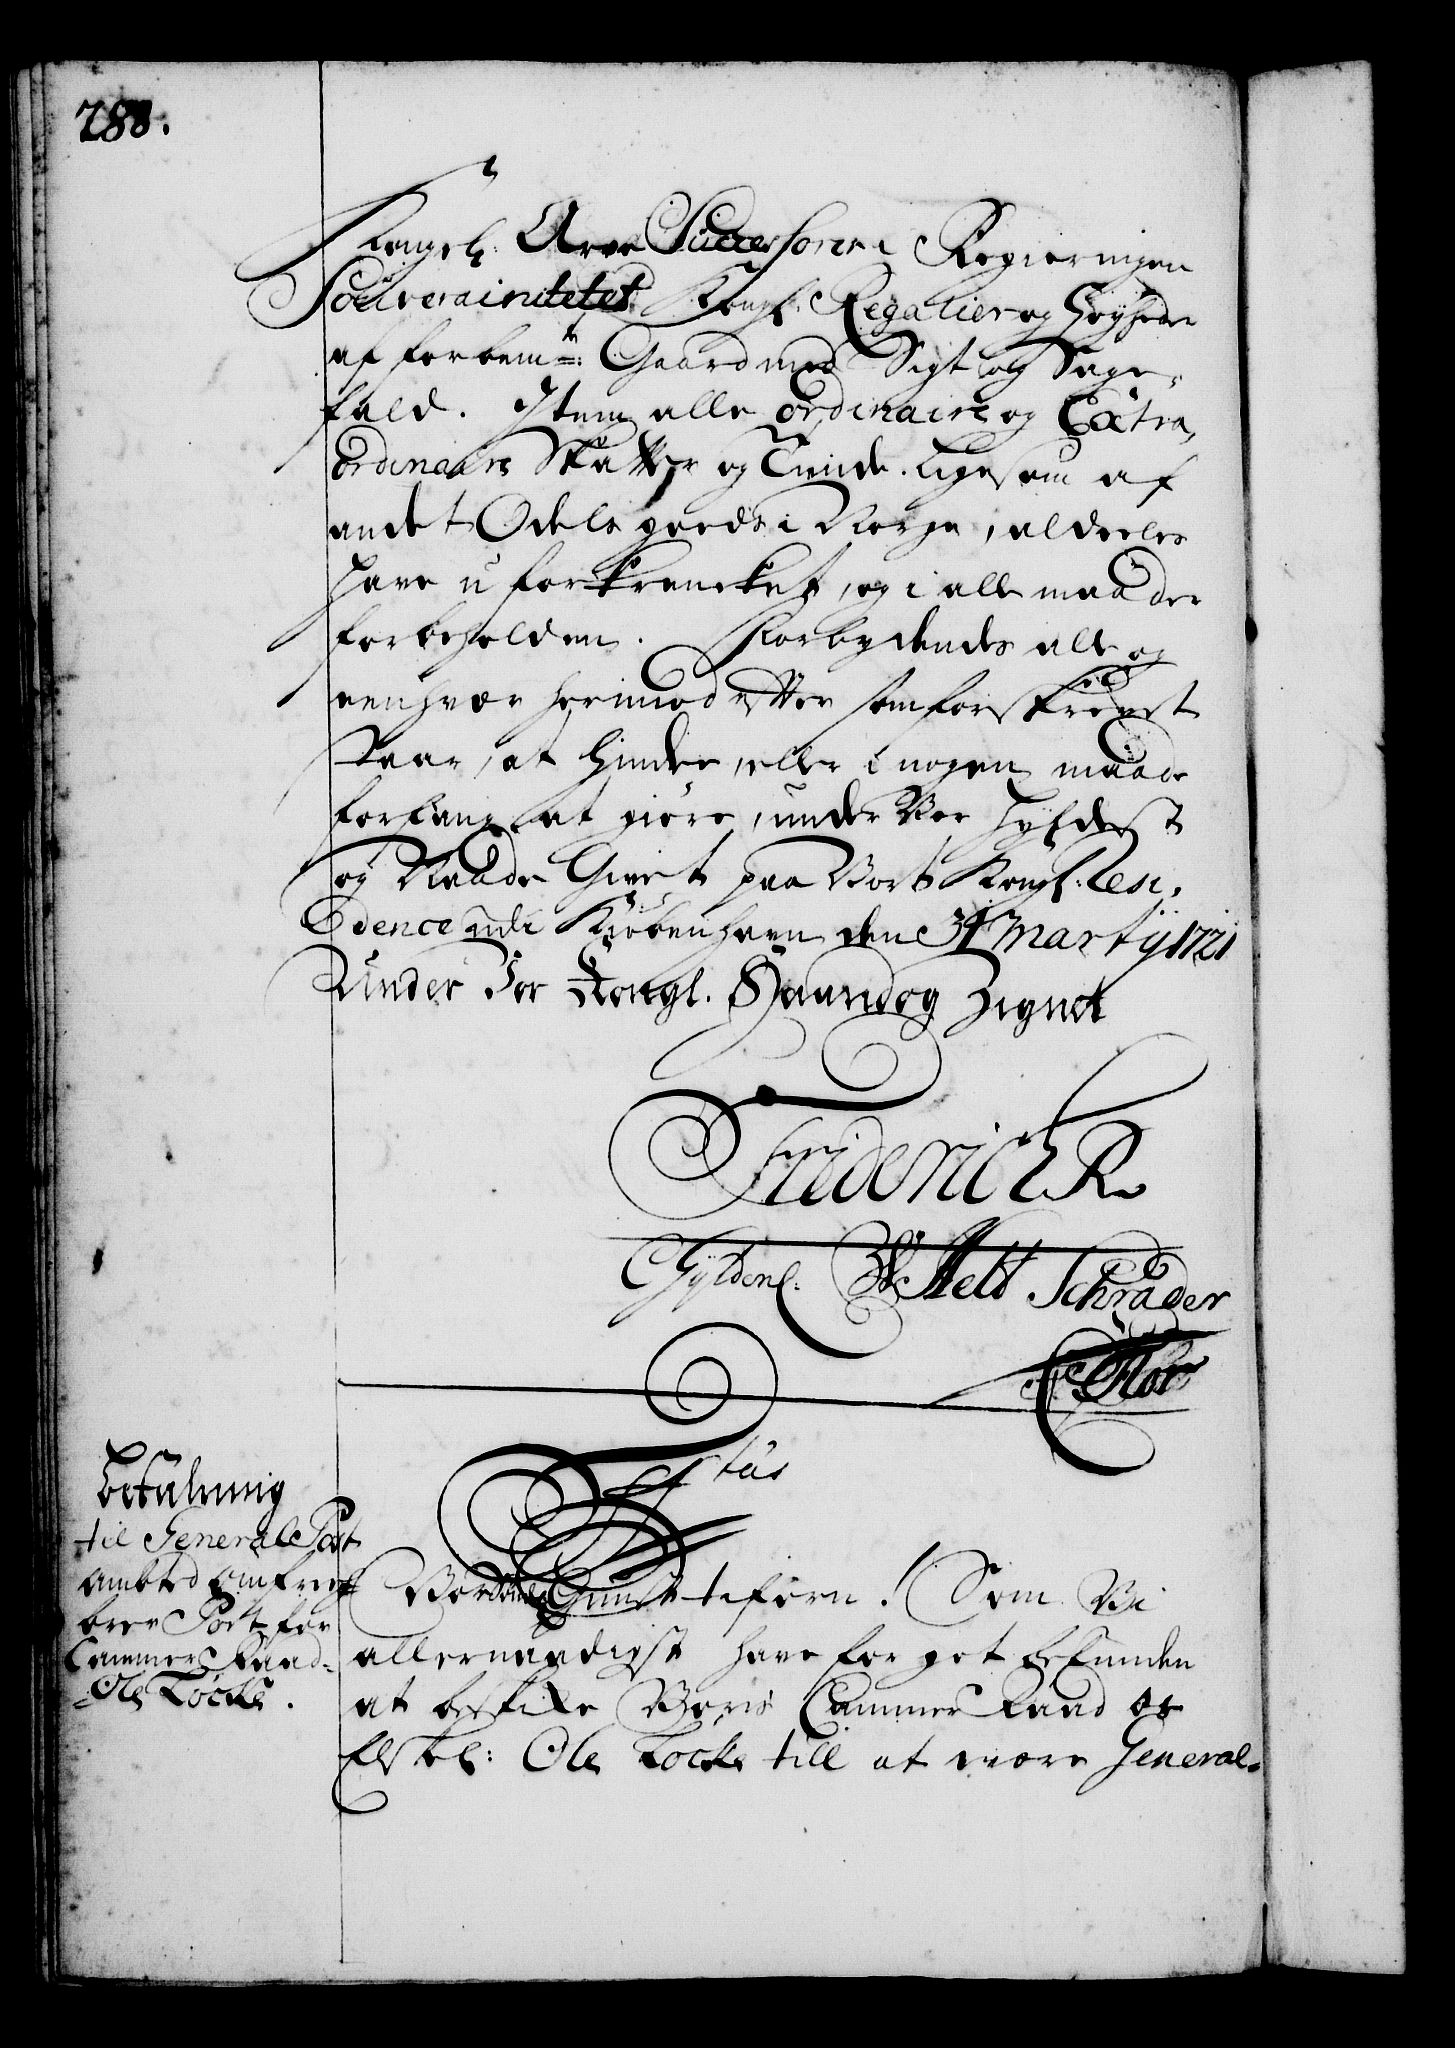 288.
Kongel: Arve Successorer i Regieringen
Souverainitetet Kongl: Regalier og Høyheder
af forbemte: Gaard med Sigt og Sage,
fald. Item alle ordinaire og Extra,
ordinaire Skatter og Tiende. Ligesom af
andet Odels goeds i Norge, aldeeles
have uforkrencket, og i alle maader
forbeholden. Forbydendes alle og
eenhver herimod efter som forskrevet
staar, at hindre, eller i nogen maade
forfang at giøre, under Vor Hyldest
og Naade Givet paa Vort Kongl: Resi,
dence udi Kiøbenhavn den 31 Martij 1721
Under Vor Kongl. Haand og Zignet
Friderich R
C Gyldenc: W Helt Schrader
Flor
Befalning
til General Post
Ambted om frie
brev Post for
Cammer Raad
Ole Tocke.
Vor Gunst tilforn! Som Vi
allernaadigst have for got befunden
at beskike Voris Cammer Raad Os
Elskel: Ole Tocke till at være General-